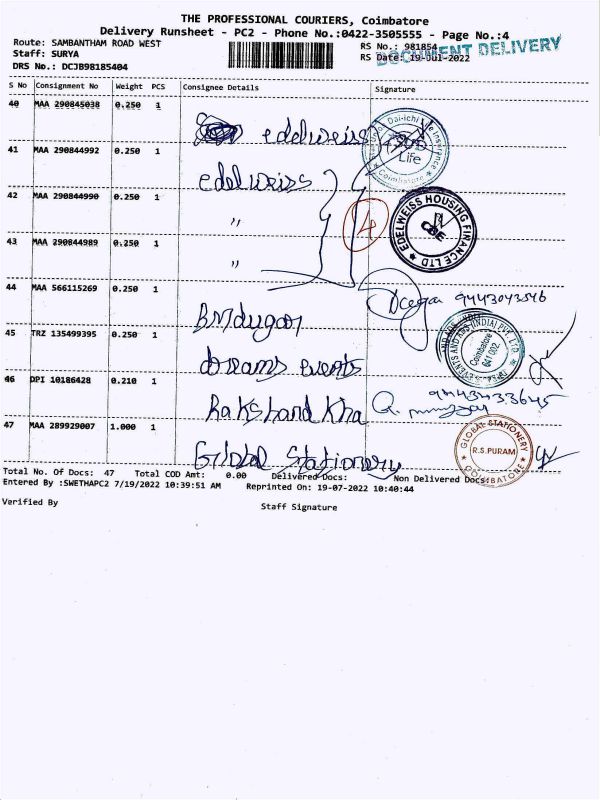 THE PROFESSIONAL COURIERS, Coimbatore
Delivery Runsheet - PC2 - Phone No.:0422-3505555 - Page No.:4
Route: SAMBANTHAM ROAD WEST
RS No.: 981854
DOCUMENT DELIVERY
Staff: SURYA
RS Date: 19-Jul-2022
DRS No.: DCJB98185404
S No Consignment No Weight PCS Consignee Details Signature
40 MAA 290845038 0.250 1
edelweiss
Dai-ichi Life Insurance
Life
Coimbatore
41 MAA 290844992 0.250 1
edelweiss
42 MAA 290844990 0.250 1
"
EDELWEISS HOUSING FINANCE LTD
CBE
4
43 MAA 290844989 0.250 1
"
44 MAA 566115269 0.250 1
9443043546
45 TRZ 135499395 0.250 1
dreams events
EVENTS AND ADS (INDIA) PVT. LTD.
Coimbatore
641 002
46 DPI 10186428 0.210 1
Rakshand Kha
9443433645
47 MAA 289929007 1.000 1
Global Stationery
GLOBAL STATIONERY
R.S.PURAM
COIMBATORE
Total No. Of Docs: 47 Total COD Amt: 0.00 Delivered Docs: Non Delivered Docs:
Entered By :SWETHAPC2 7/19/2022 10:39:51 AM Reprinted On: 19-07-2022 10:40:44
Verified By
Staff Signature